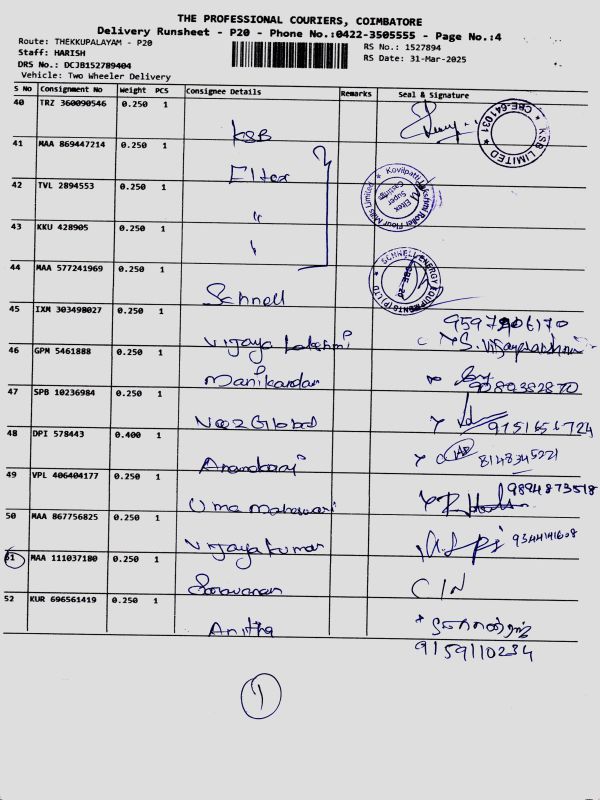 THE PROFESSIONAL COURIERS, COIMBATORE
Delivery Runsheet - P20 - Phone No.:0422-3505555 - Page No.:4
Route: THEKKUPALAYAM - P20
Staff: HARISH
DRS No.: DCJB152789404
Vehicle: Two Wheeler Delivery
RS No.: 1527894
RS Date: 31-Mar-2025
S No Consignment No Weight PCS Consignee Details Remarks Seal & Signature
40 TRZ 360090546 0.250 1
KSB
KSB LIMITED * CBE-641031 *
41 MAA 869447214 0.250 1
Eltex
Kovilpatti Lakshmi Roller Flour Mills Limited
Eltek Super Castings
42 TVL 2894553 0.250 1
"
43 KKU 428905 0.250 1
"
44 MAA 577241969 0.250 1
Schnell
SCHNELL ENERGY EQUIPMENTS (P) LTD
CBE-20
45 IXM 303498027 0.250 1
Vijaya Lakshmi
46 GPM 5461888 0.250 1
Manikandan
9089382870
47 SPB 10236984 0.250 1
Nooz Global
9151656724
48 DPI 578443 0.400 1
Anandaraj
8148345221
49 VPL 406404177 0.250 1
Uma Maheswari
9894873518
50 MAA 867756825 0.250 1
Vijaya Kumar
9344141608
51 MAA 111037180 0.250 1
Saravanan
C/N
52 KUR 696561419 0.250 1
Anitha
9159110234
1